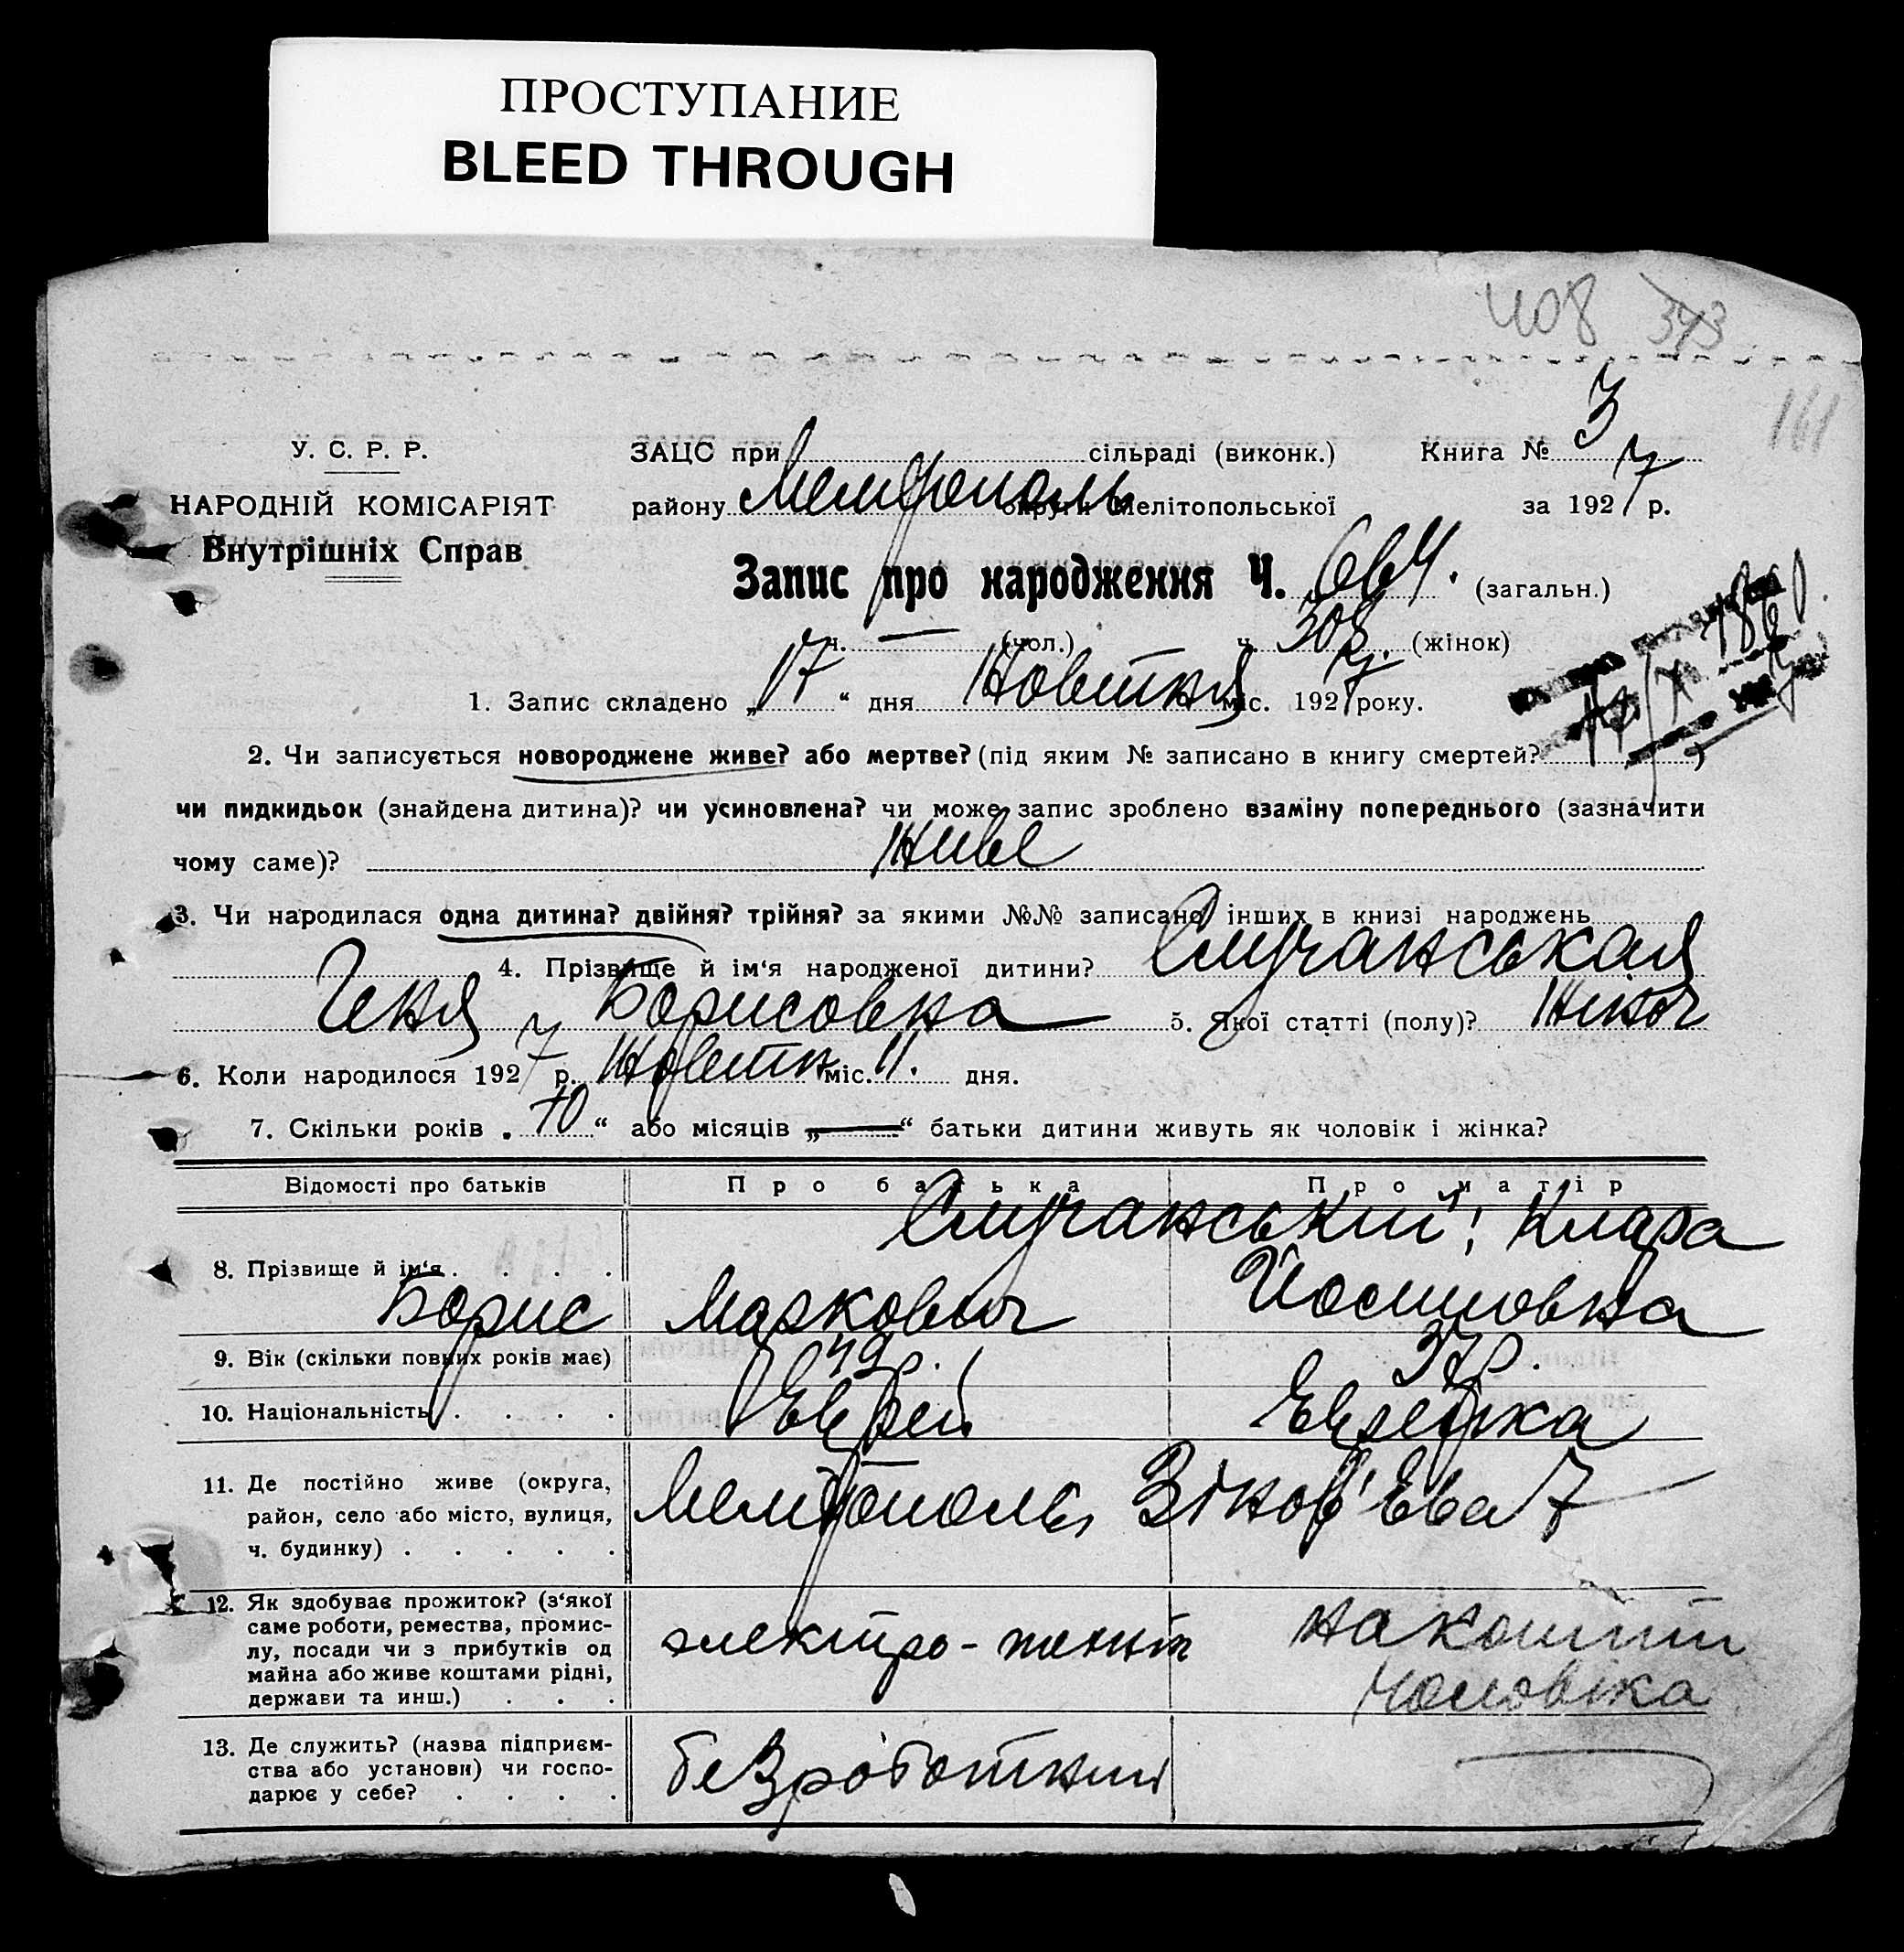 ПРОСТУПАНИЕ
BLEED THROUGH
408 373
161
У. С. Р. Р.
НАРОДНІЙ КОМІСАРІЯТ
Внутрішніх Справ
ЗАЦС при сільраді (виконк.) Книга № 3
району Мелітополь округи Мелітопольської за 1927 р.
Запис про народження Ч. 664. (загальн.)
ч. — (чол.) ч. 308. (жінок)
1. Запис складено „17“ дня Жовтня міс. 1927 року.
2. Чи записується новороджене живе? або мертве? (під яким № записано в книгу смертей? )
чи пидкидьок (знайдена дитина)? чи усиновлена? чи може запис зроблено взаміну попереднього (зазначити
чому саме)? Живе
3. Чи народилася одна дитина? двійня? трійня? за якими №№ записано інших в книзі народжень
4. Прізвище й ім‘я народженої дитини?
Борисовна 5. Якої статті (полу)? Жіноч
6. Коли народилося 1927 р. Жовтн міс. 11. дня.
7. Скільки років „10“ або місяців „—“ батьки дитини живуть як чоловік і жінка?
Відомості про батьків Про батька Про матір
Клара
8. Прізвище й ім‘я . . . .
Борис Маркович Йосиповна
9. Вік (скільки повних років має) 49 р. 37 р.
10. Національність . . . . Еврей Еврейка
11. Де постійно живе (округа,
район, село або місто, вулиця,
ч. будинку) . . . . .
Мелітополь Зінов'Ева 7
12. Як здобуває прожиток? (з‘якої
саме роботи, ремества, промис-
лу, посади чи з прибутків од
майна або живе коштами рідні,
держави та инш.) . . .
электро-техніт на кошти
чоловіка
13. Де служить? (назва підприєм-
ства або установи) чи госпо-
дарює у себе? . . . .
безроботний